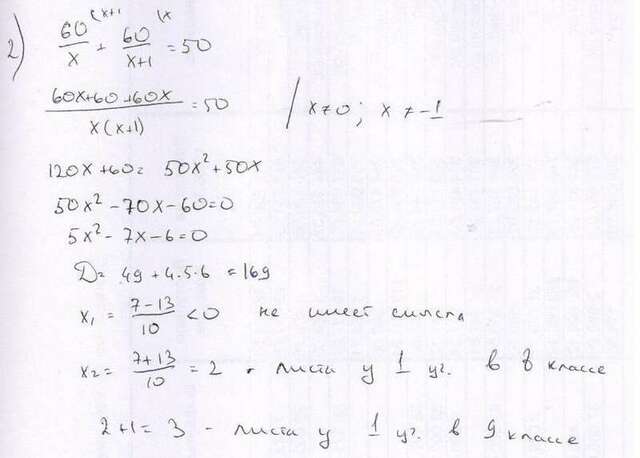 2) 60/x (x+1 + 60/x+1 (x = 50
60x+60+60x / x(x+1) = 50 / x≠0; x≠-1
120x+60 = 50x² + 50x
50x² - 70x - 60 = 0
5x² - 7x - 6 = 0
D = 49 + 4·5·6 = 169
x₁ = 7-13 / 10 < 0 не имеет смысла
x₂ = 7+13 / 10 = 2 - листа у 1 уч. в 8 классе
2+1 = 3 - листа у 1 уч. в 9 классе